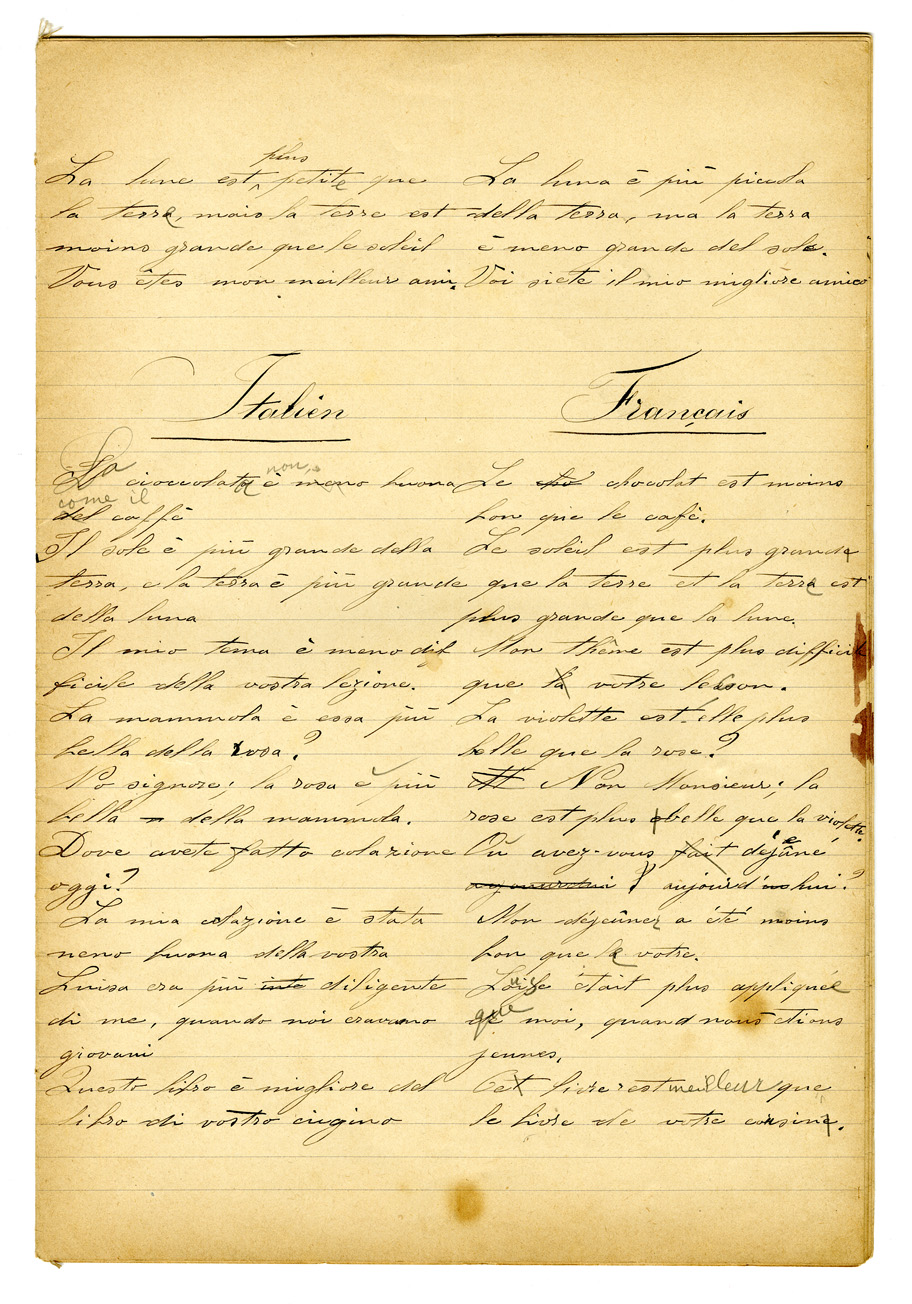 plus
La lune est petite que
la terre, mais la terre est
moins grande que le soleil
Vous êtes mon meilleur ami.
La luna è più piccola
della terra, ma la terra
è meno grande del sole.
Voi siete il mio migliore amico
Italien
La cioccolata è meno buona
non
come il
del caffè
Il sole è più grande della
terra, e la terra è più grande
della luna
Il mio tema è meno dif
ficile della vostra lezione.
La mammola è essa più
bella della rosa?
No signore; la rosa è più
bella della mammola.
Dove avete fatto colazione
oggi?
La mia colazione è stata
meno buona della vostra
Luisa era più diligente
di me, quando noi eravamo
giovani
Questo libro è migliore del
libro di vostro cugino
Français
Le chocolat est moins
bon que le café.
Le soleil est plus grand
que la terre et la terre est
plus grande que la lune.
Mon thème est plus difficil
que la votre leçon.
La violette est-elle plus
belle que la rose?
Non Monsieur; la
rose est plus belle que la violette.
Où avez-vous fait déjeûné
aujourd'hui?
Mon déjeûner a été moins
bon que le votre.
Louise était plus appliquée
que moi, quand nous étions
jeunes.
Cet livre est meilleur que
le livre de votre cousin.